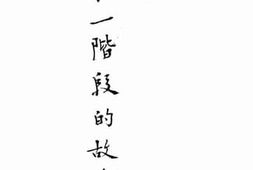 一階段的故